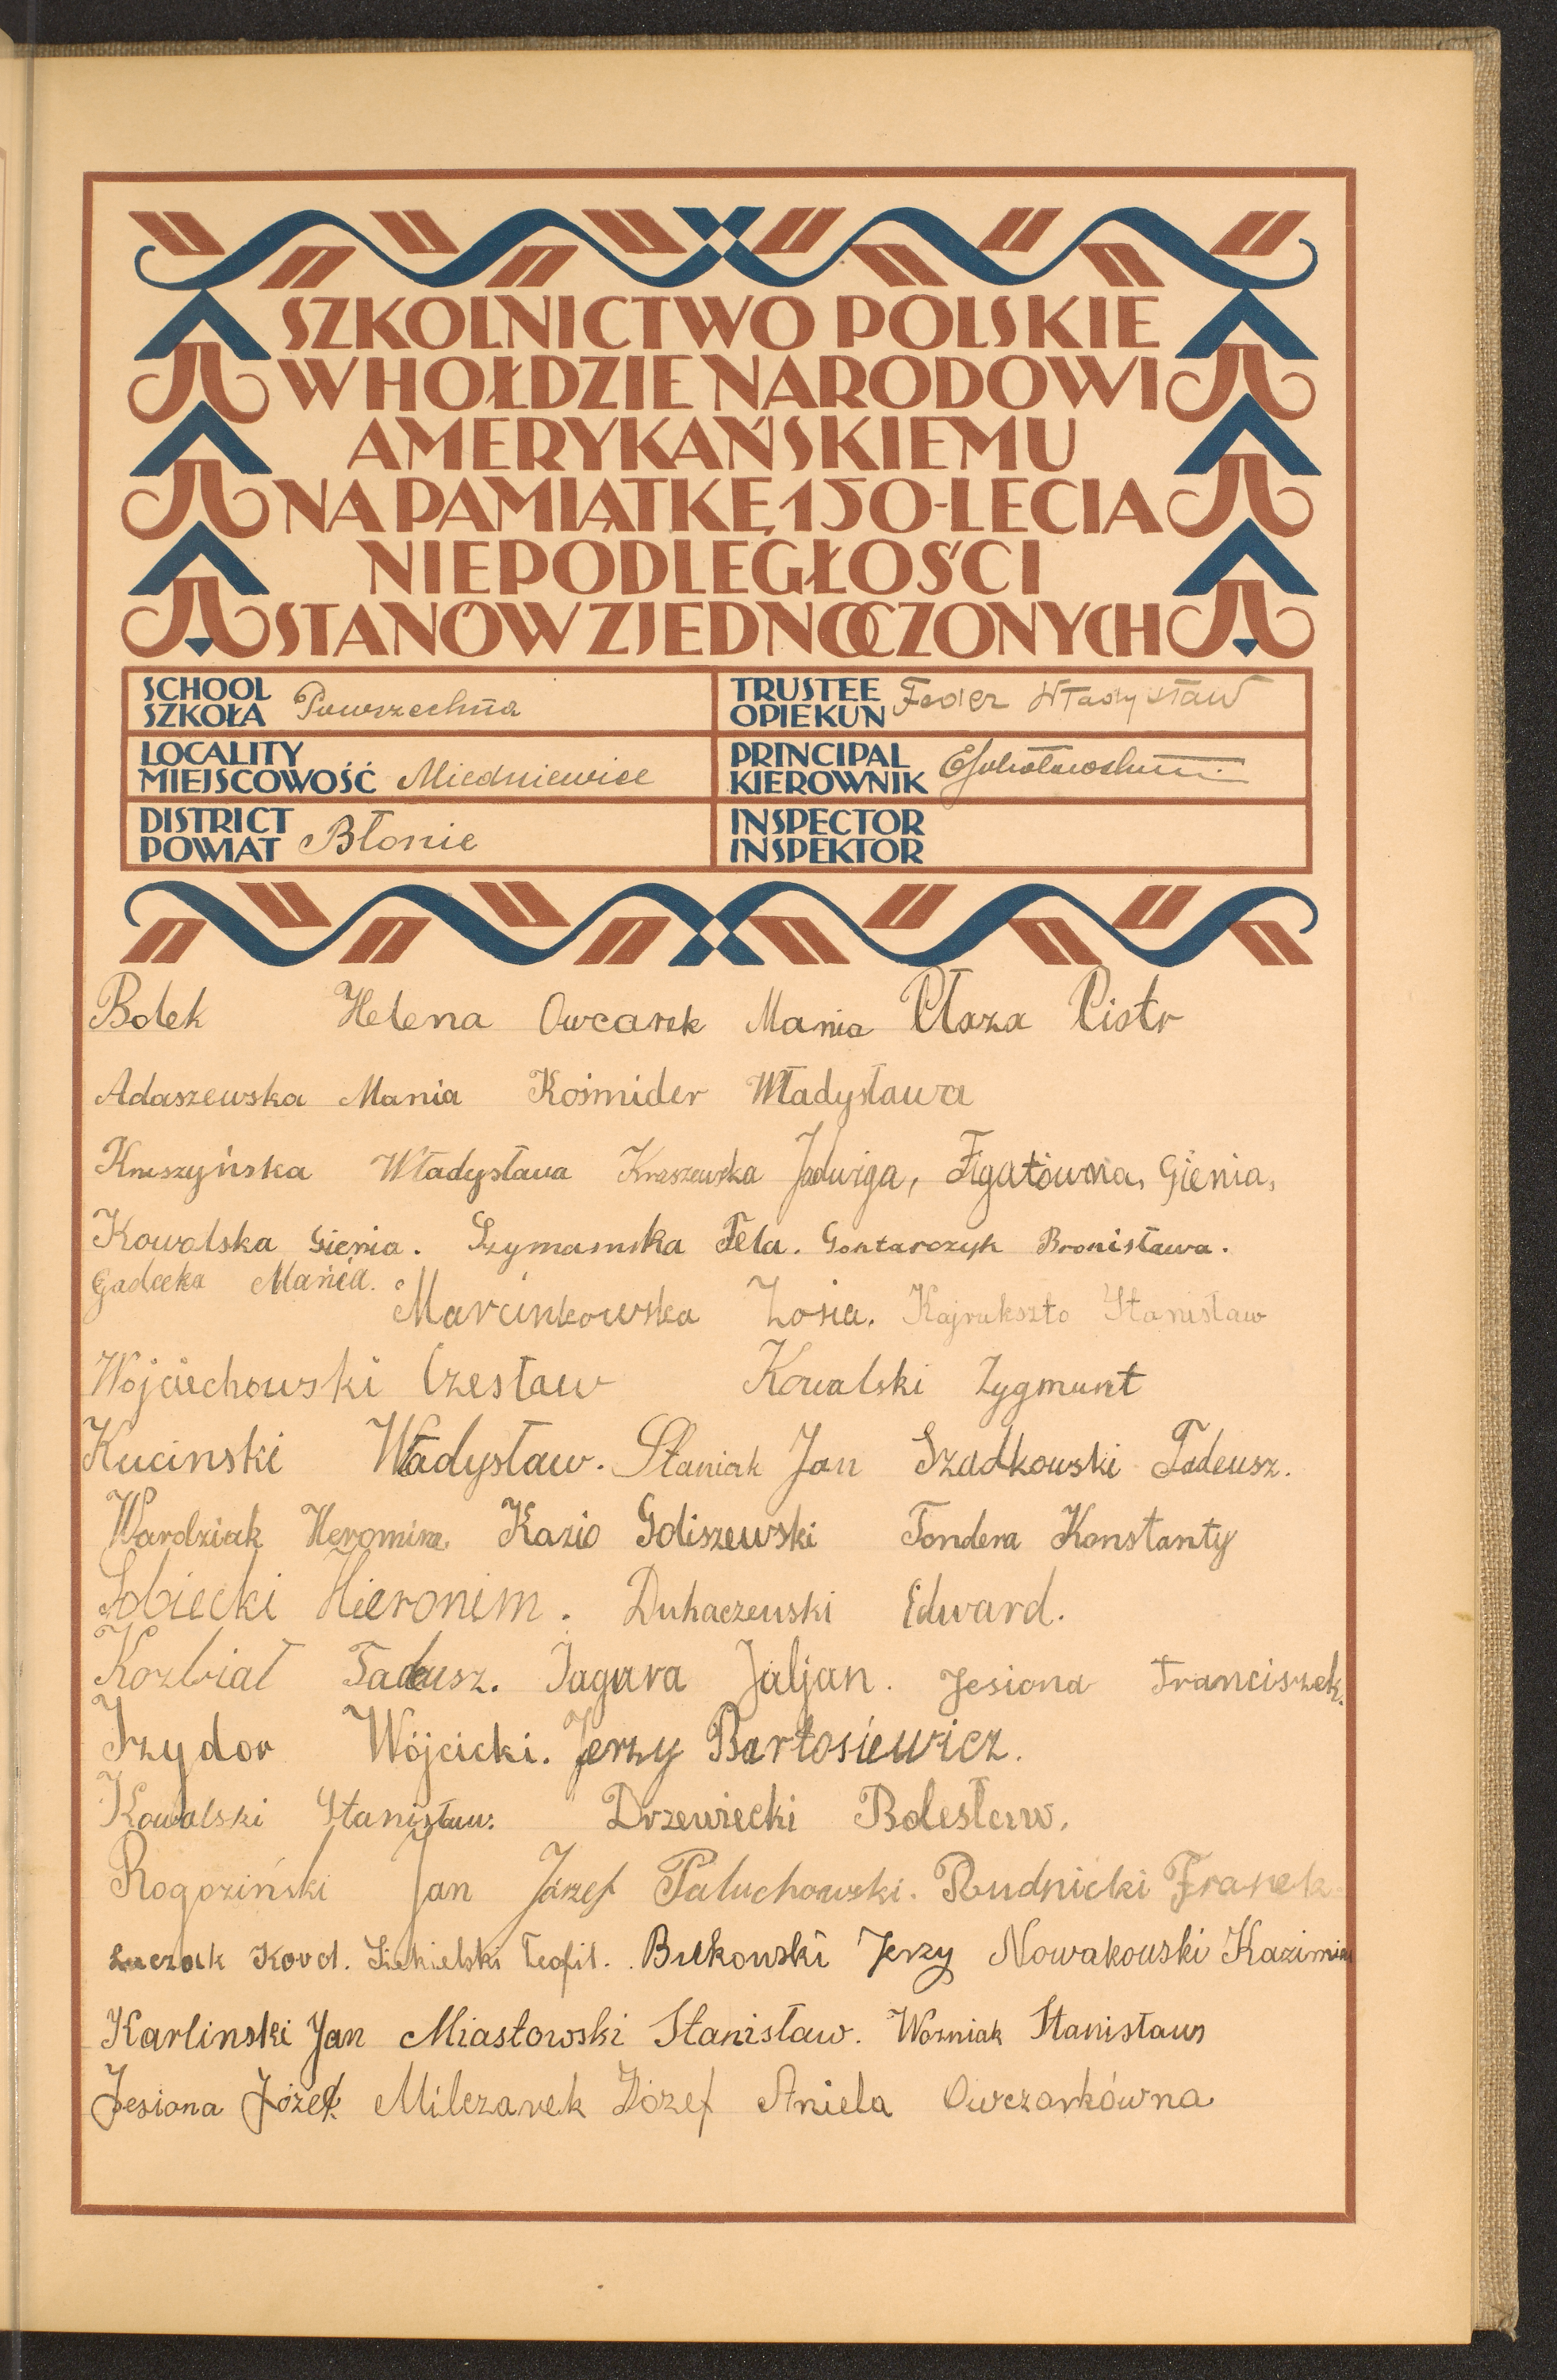 SZKOLNICTWO POLSKIE
W HOŁDZIE NARODOWI
AMERYKAŃSKIEMU
NA PAMIĄTKĘ 150-LECIA
NIEPODLEGŁOŚCI
STANÓW ZJEDNOCZONYCH
SCHOOL
SZKOŁA Powszechna
TRUSTEE
OPIEKUN Feder Władysław
LOCALITY
MIEJSCOWOŚĆ Miedniewice
PRINCIPAL
KIEROWNIK
DISTRICT
POWIAT Błonie
INSPECTOR
INSPEKTOR
Bolek Helena Owcarek Mania Płaza Piotr
Adaszewska Mania Kośmider Władysława
Kruszyńska Władysława Kraszewska Jadwiga, Figatówna, Gienia,
Kowalska Gienia. Szymamska Fela. Gontarczyk Bronisława.
Gadecka Mania.
Marcinkowska Zosia. Kajrukszto Stanisław
Wojciechowski Czesław Kowalski Zygmunt
Kucinski Władysław. Staniak Jan Szadkowski Tadeusz.
Wardziak Kazio Goliszewski Tondera Konstanty
Sobiecki Hieronim. Duhaczewski Edward.
Kozbiał Tadeusz. Jagura Jaljan. Jesiona Franciszek.
Izydor Wójcicki. Jerzy Bartosiewicz.
Kowalski Stanisław. Drzewiecki Bolesław.
Rogoziński Jan Józef Paluchowski. Rudnicki Franek
Luczak Karol. Siekielski Teofil. Bukowski Jerzy Nowakowski Kazimierz
Karlinski Jan Miastowski Stanisław. Wozniak Stanisław
Jesiona Józef Milczarek Józef Aniela Owczarkówna